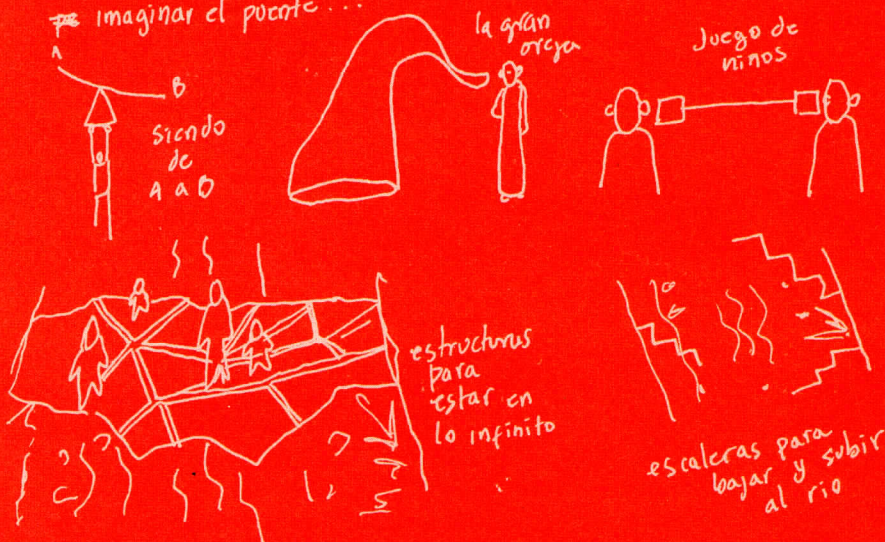 imaginar el puente...
A
B
siendo
de
A a B
la gran
oreja
Juego de
niños
estructuras
para
estar en
lo infinito
escaleras para
bajar y subir
al río